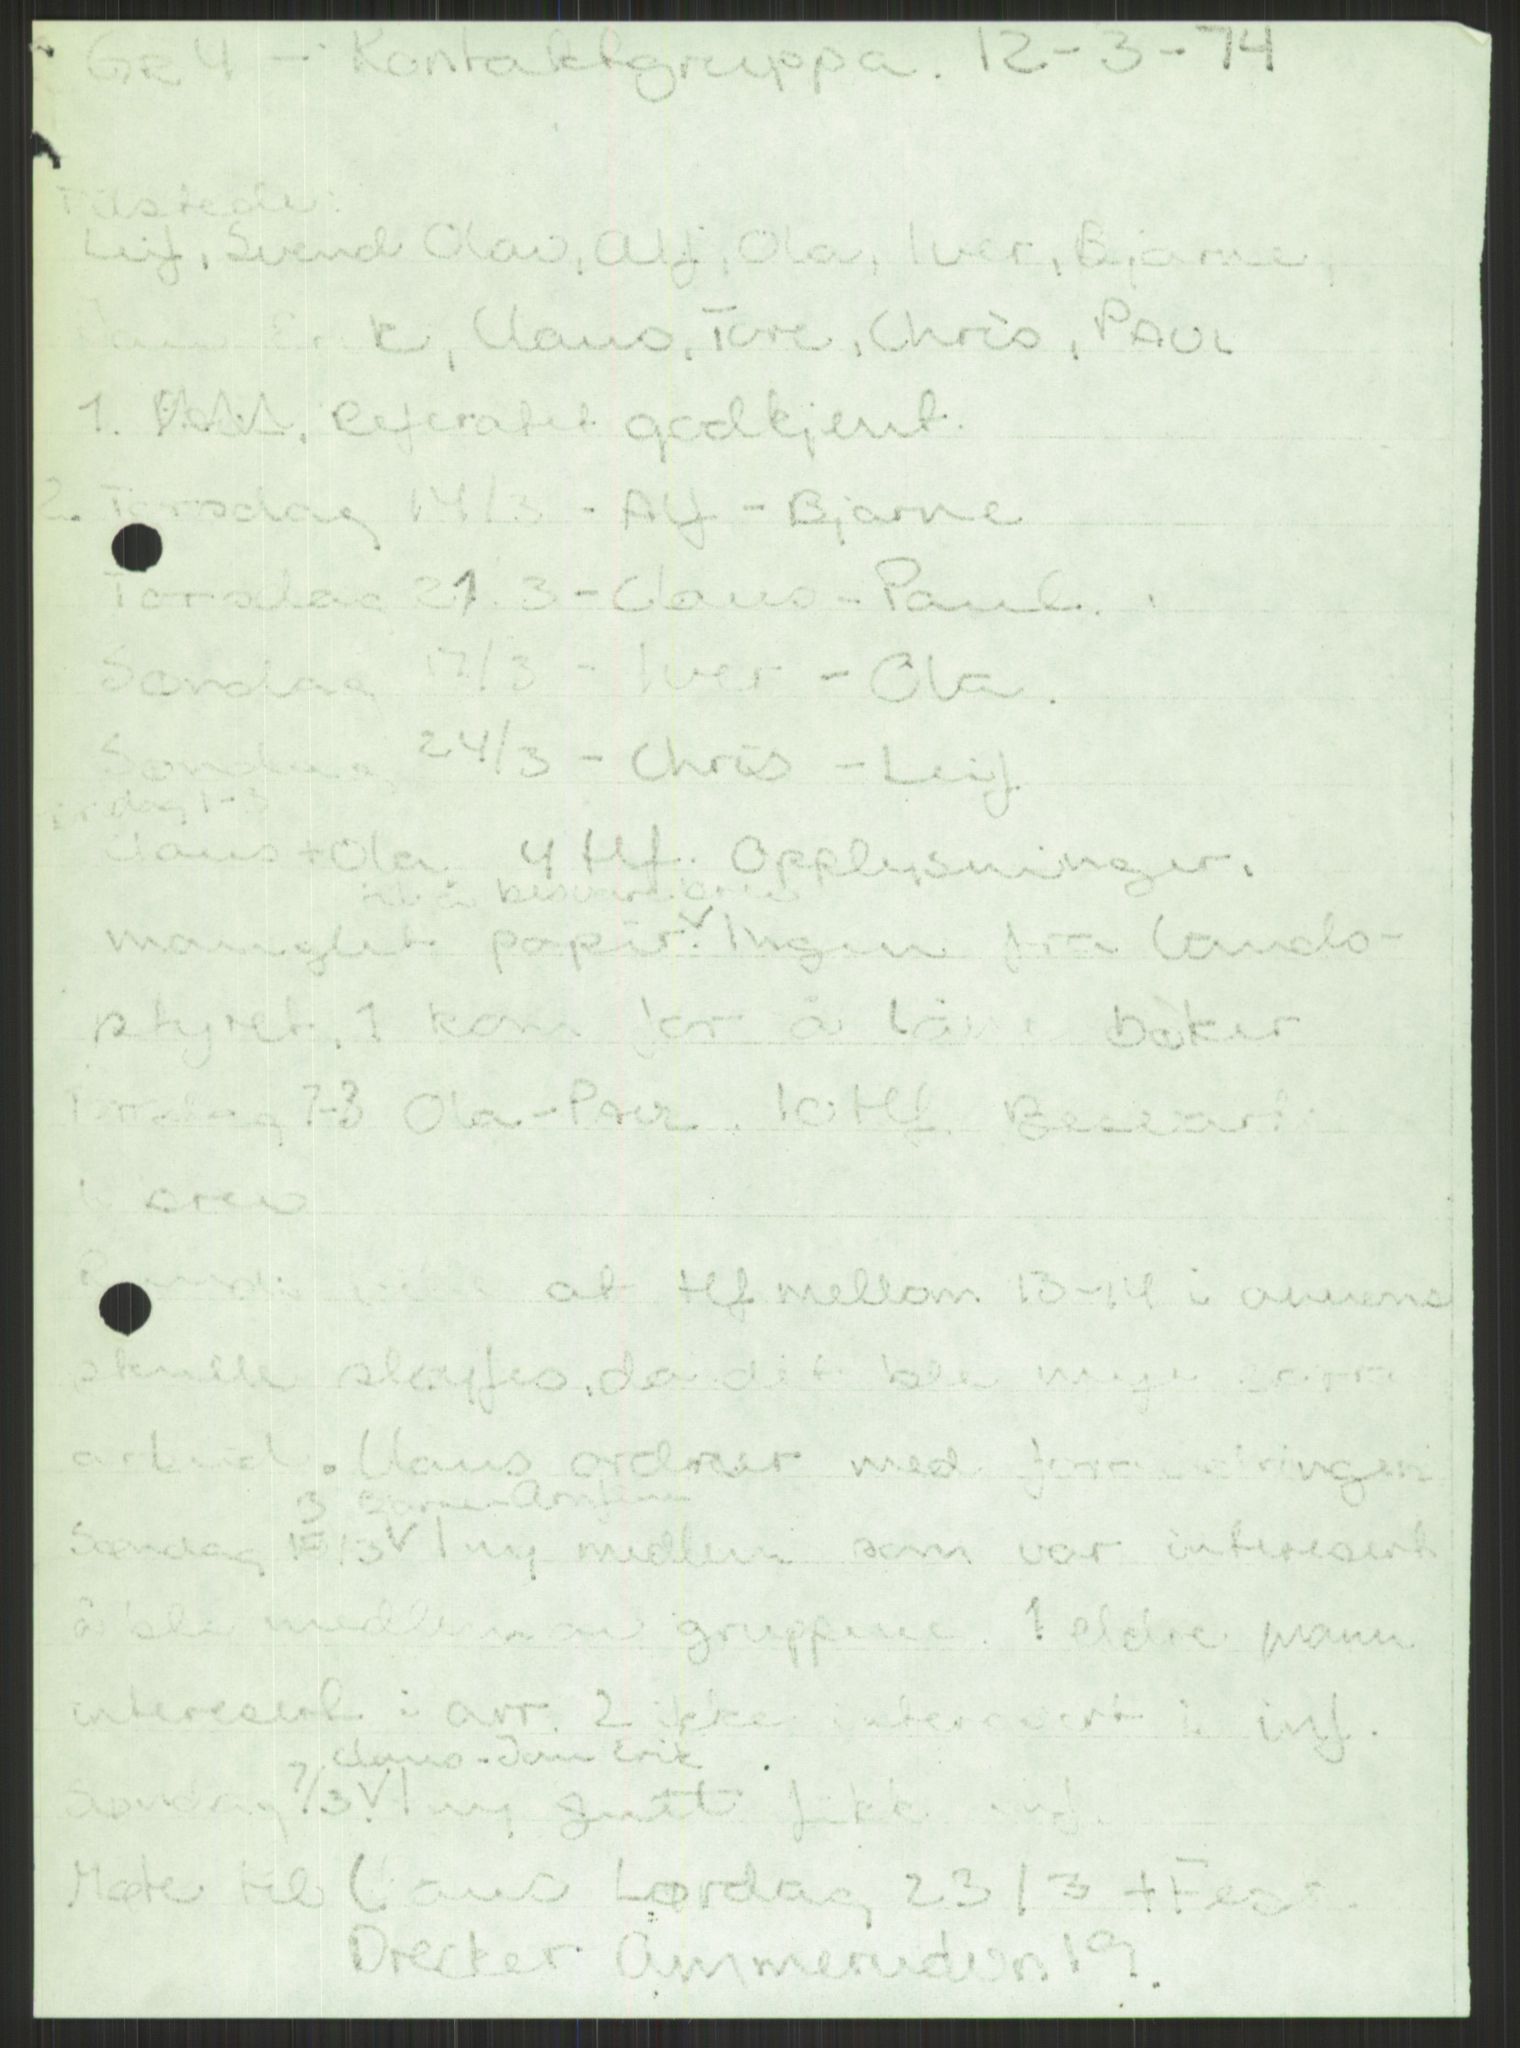 GR 4 - Kontaktgruppa. 12-3-74
Tilstede:
Leif, Svend Olav, Alf, Ola, Iver, Bjarne,
k, Claus, Tore, Chris, PAUL
1. Referatet godkjent.
2. Torsdag 14/3 - Alf - Bjarne
Torsdag 21. 3 - Claus - Paul.
Søndag 17/3 - Iver - Ola.
Søndag 24/3 - Chris - Leif
dag 1-3
Claus + Ola 4 tlf. Opplysninger.
til å besvare brev
manglet papir. Ingen fra lands-
styret. 1 kom for å låne bøker
Torsdag 7-3 Ola - Paul. tlf. Besvart
brev
at tlf mellom 13-14 i
skulle sløyfes, da det ble mye
arbeid. Claus ordner med
3 Bjarne
Søndag /3 1 ny medlem som var interesert
å ble medlem av gruppene. 1 eldre mann
interesert i arr. 2 ikke interesert i inf.
Claus - Jan Erik
Søndag /3 1 ny gutt fikk inf.
Møte til Claus Lørdag 23/3 + Fest
Drecker Ammerudvn 19.